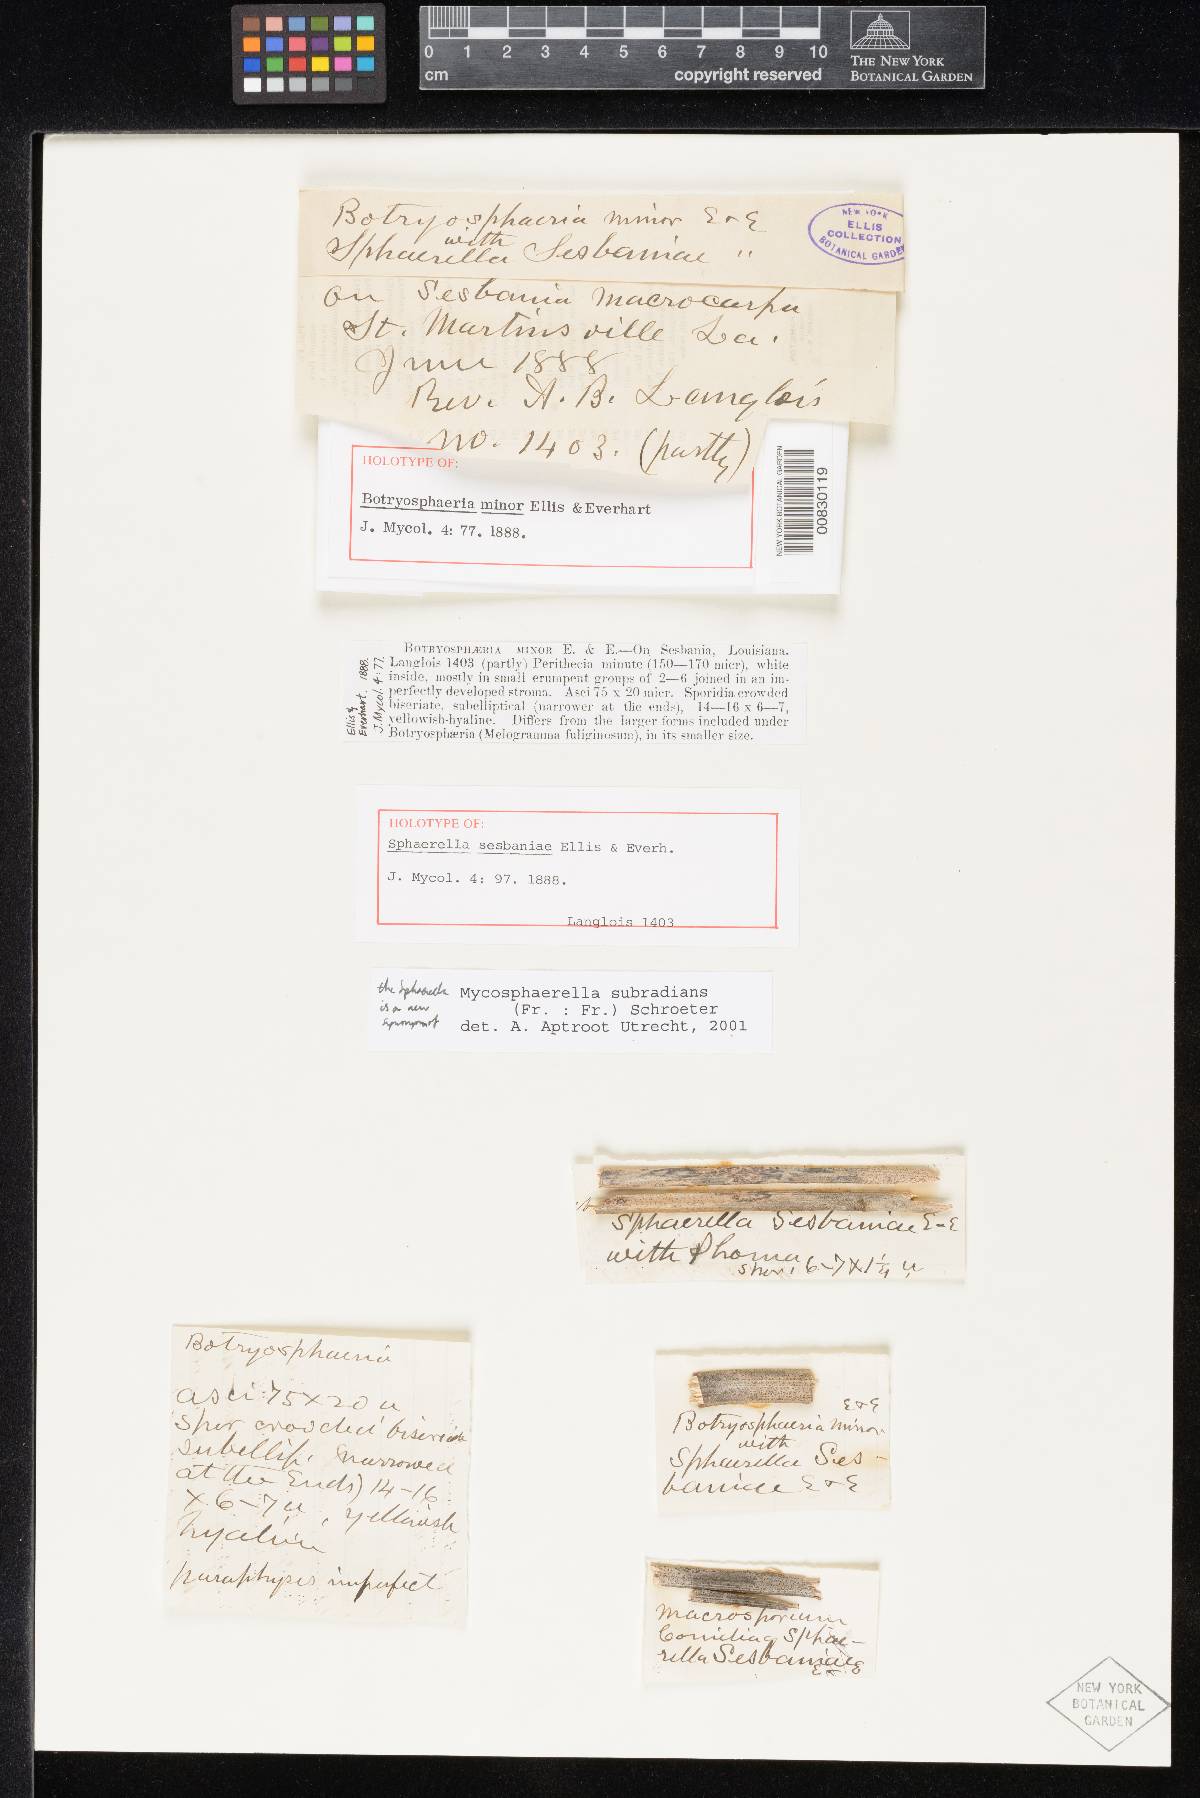 0 1 2 3 4 5 6 7 8 9 10
cm
copyright reserved
THE NEW YORK
BOTANICAL GARDEN
Botryosphaeria minor E & E
with
Sphaerella Sesbaniae "
NEW YORK
ELLIS
COLLECTION
BOTANICAL GARDEN
on Sesbania macrocarpa
St. Martinsville La.
June 1888
Rev. A. B. Langlois
no. 1403. (partly)
HOLOTYPE OF:
Botryosphaeria minor Ellis & Everhart
J. Mycol. 4: 77. 1888.
NEW YORK BOTANICAL GARDEN
00830119
Ellis &
Everhart, 1888.
J. Mycol. 4:77.
BOTRYOSPHÆRIA MINOR E. & E.—On Sesbania, Louisiana.
Langlois 1403 (partly) Perithecia minute (150—170 micr), white
inside, mostly in small erumpent groups of 2—6 joined in an im-
perfectly developed stroma. Asci 75 x 20 micr. Sporidia crowded
biseriate, subelliptical (narrower at the ends), 14—16 x 6—7,
yellowish-hyaline. Differs from the larger forms included under
Botryosphæria (Melogramma fuliginosum), in its smaller size.
HOLOTYPE OF:
Sphaerella sesbaniae Ellis & Everh.
J. Mycol. 4: 97. 1888.
Langlois 1403
the Sphaerella
is a new
synonym of
Mycosphaerella subradians
(Fr. : Fr.) Schroeter
det. A. Aptroot Utrecht, 2001
Sphaerella Sesbaniae E & E
with Phoma
spor. 6-7 x 1 1/4 u
Botryosphaeria
asci 75 x 20 u
spor crowded biseriate
subellip. (narrowed
at the ends) 14-16
x 6-7 u, yellowish
hyaline
paraphyses imperfect
E & E
Botryosphaeria minor
with
Sphaerella Ses-
baniae E & E
Macrosporium
Conidia Sphae-
rella Sesbaniae
E & E
NEW YORK
BOTANICAL
GARDEN